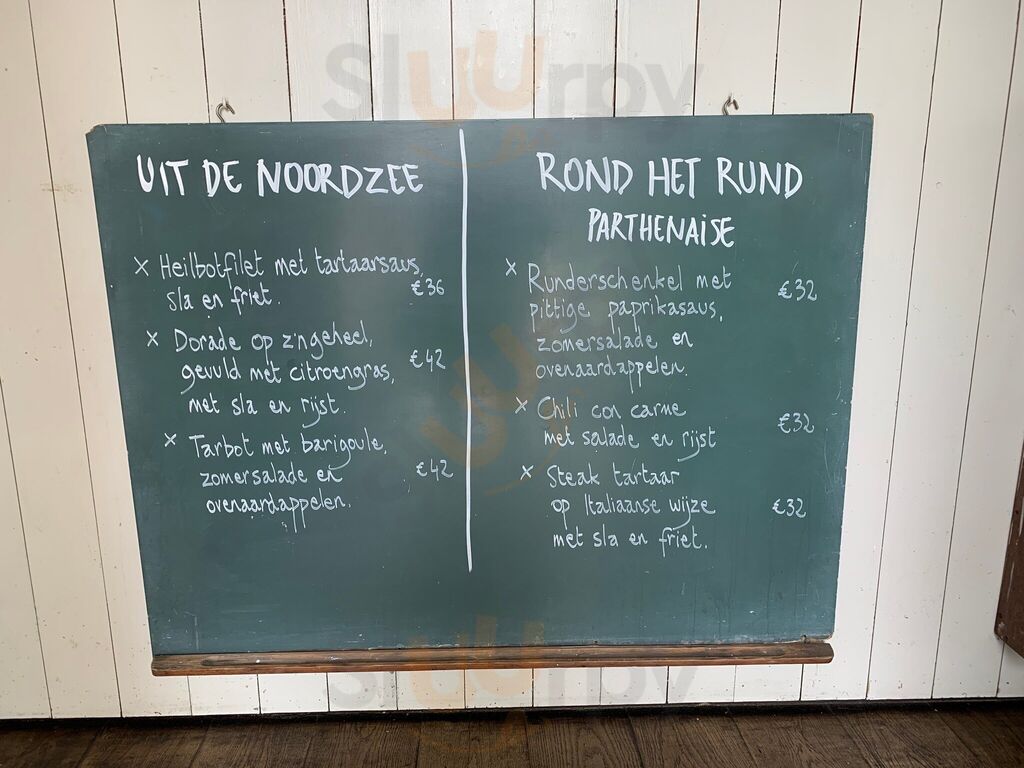 Sluurpy
UIT DE NOORDZEE
X Heilbotfilet met tartaarsaus,
sla en friet. €36
X Dorade op z'n geheel,
gevuld met citroengras, €42
met sla en rijst.
X Tarbot met barigoule,
zomersalade en €42
ovenaardappelen.
ROND HET RUND
PARTHENAISE
X Runderschenkel met €32
pittige paprikasaus,
zomersalade en
ovenaardappelen.
X Chili con carne €32
met salade en rijst
X Steak tartaar
op Italiaanse wijze €32
met sla en friet.
Sluurpy